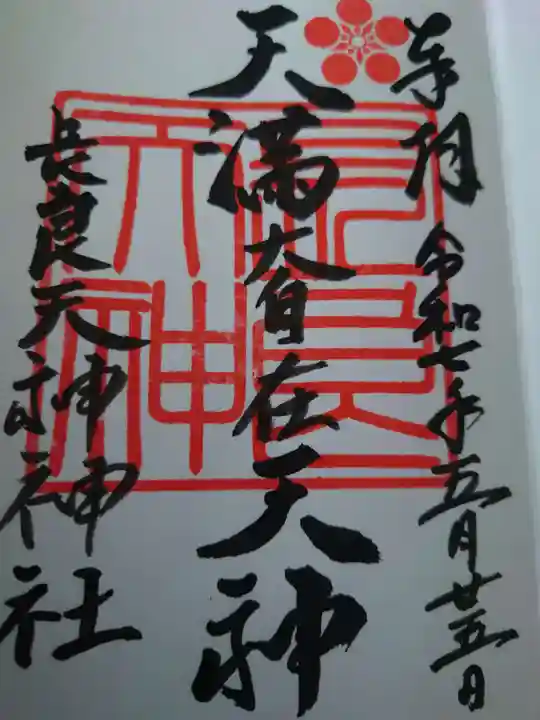 奉拝 令和七年五月廿五日
天満大自在天神
長良天神神社
長良天神